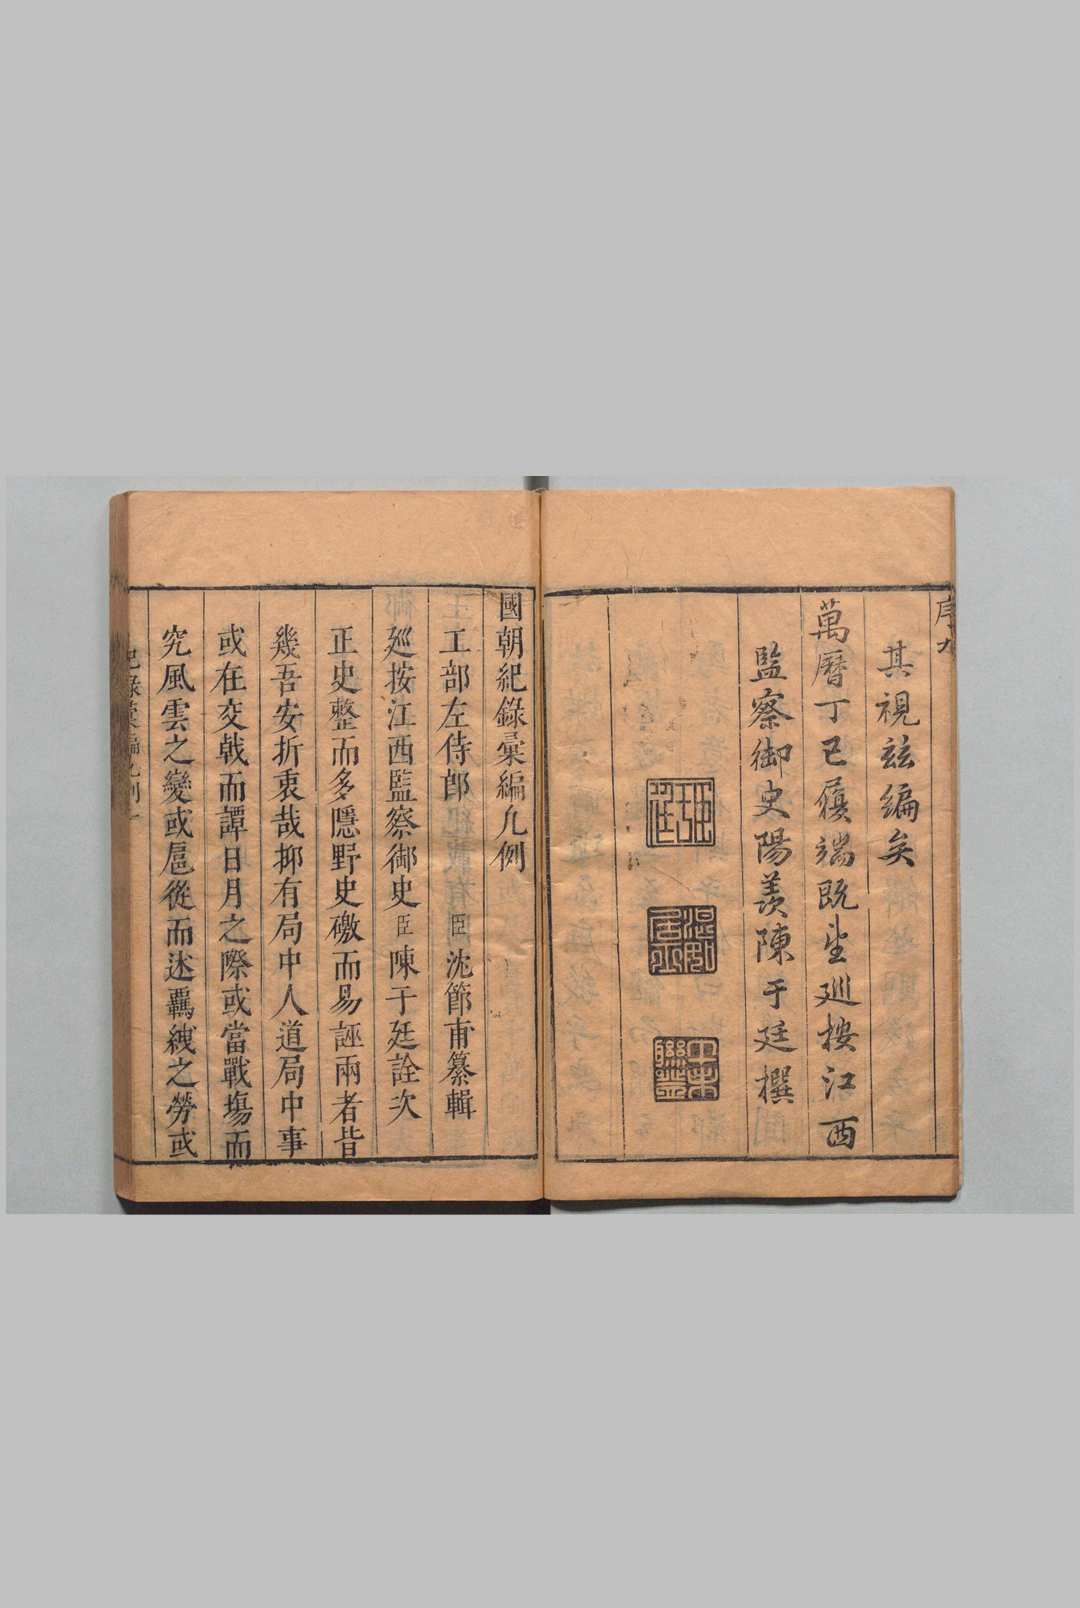 序九
其視玆編矣
萬曆丁巳蓂端旣望廵按江西
監察御史陽羨陳于廷撰
國朝紀錄彙編凡例
工部左侍郎臣沈節甫纂輯
廵按江西監察御史臣陳于廷詮次
正史整而多隱野史磤而易誣兩者皆
幾吾安折衷哉抑有局中人道局中事
或在交戟而譚日月之際或當戰塲而
究風雲之變或扈從而述羈紲之勞或
紀錄彙編凡例一